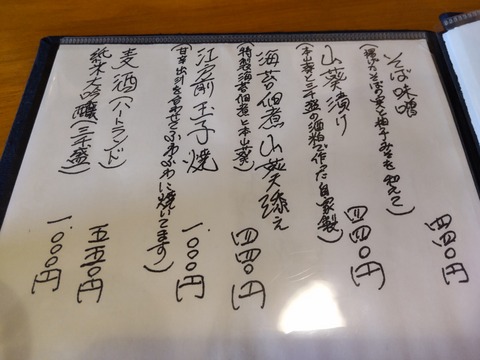 そば味噌 四四〇円
(揚げたそばの実と柚子みそを和えて)
山葵漬け 四四〇円
(本山葵と三千盛の酒粕で作った自家製)
海苔佃煮山葵添え 四四〇円
(特製海苔佃煮と本山葵)
江戸前玉子焼 一、〇〇〇円
(甘辛出汁を合わせてふわふわに焼いてます)
麦酒(ハートランド) 五五〇円
純米大吟醸(三千盛) 一、〇〇〇円